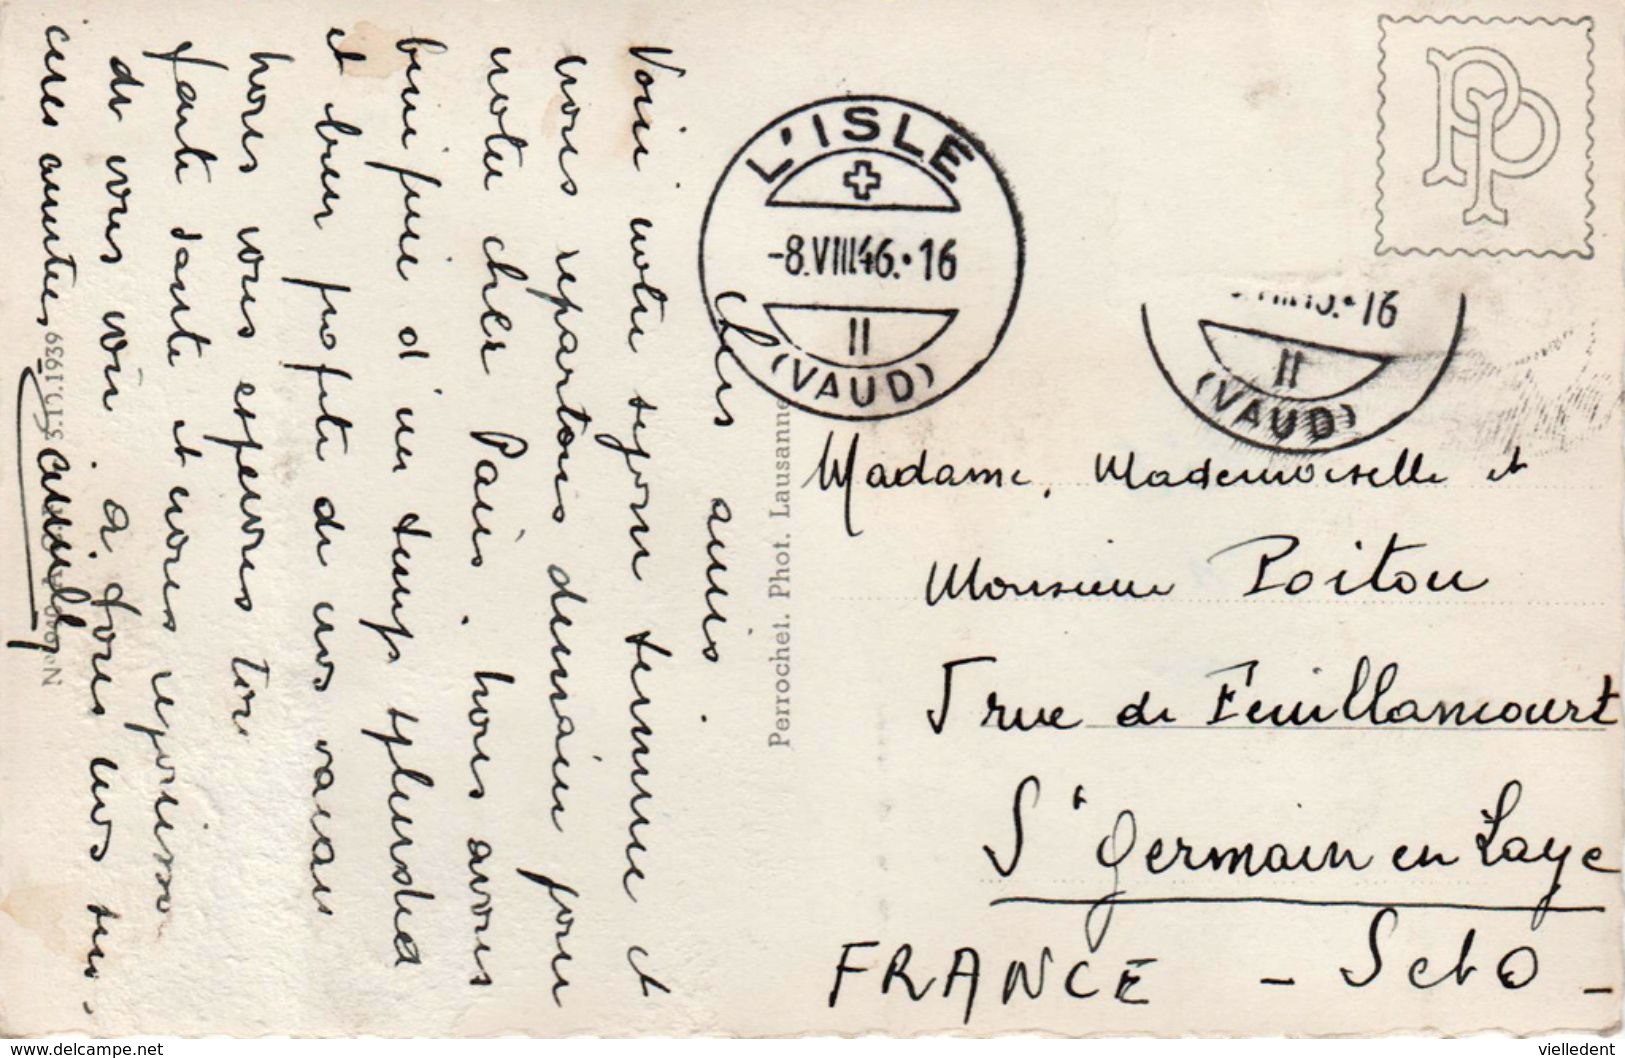 Chers amis.
Voici notre séjour terminé et
nous repartons demain pour
notre cher Paris. Nous avons
bénéficié d'un temps splendide
et bien profité de nos vacances
Nous vous espérons tous en
parfaite santé et nous réjouissons
de vous voir à tous nos sin-
cères amitiés
Perrochet. Phot. Lausanne
S. I. 1. 1939
L'ISLE
-8.VIII.46.•16
II
(VAUD)
•16
II
(VAUD)
PP
Madame, Mademoiselle et
Monsieur Poitou
5 rue de Feuillancourt
St Germain en Laye
FRANCE - S et O -
www.delcampe.net
vielledent